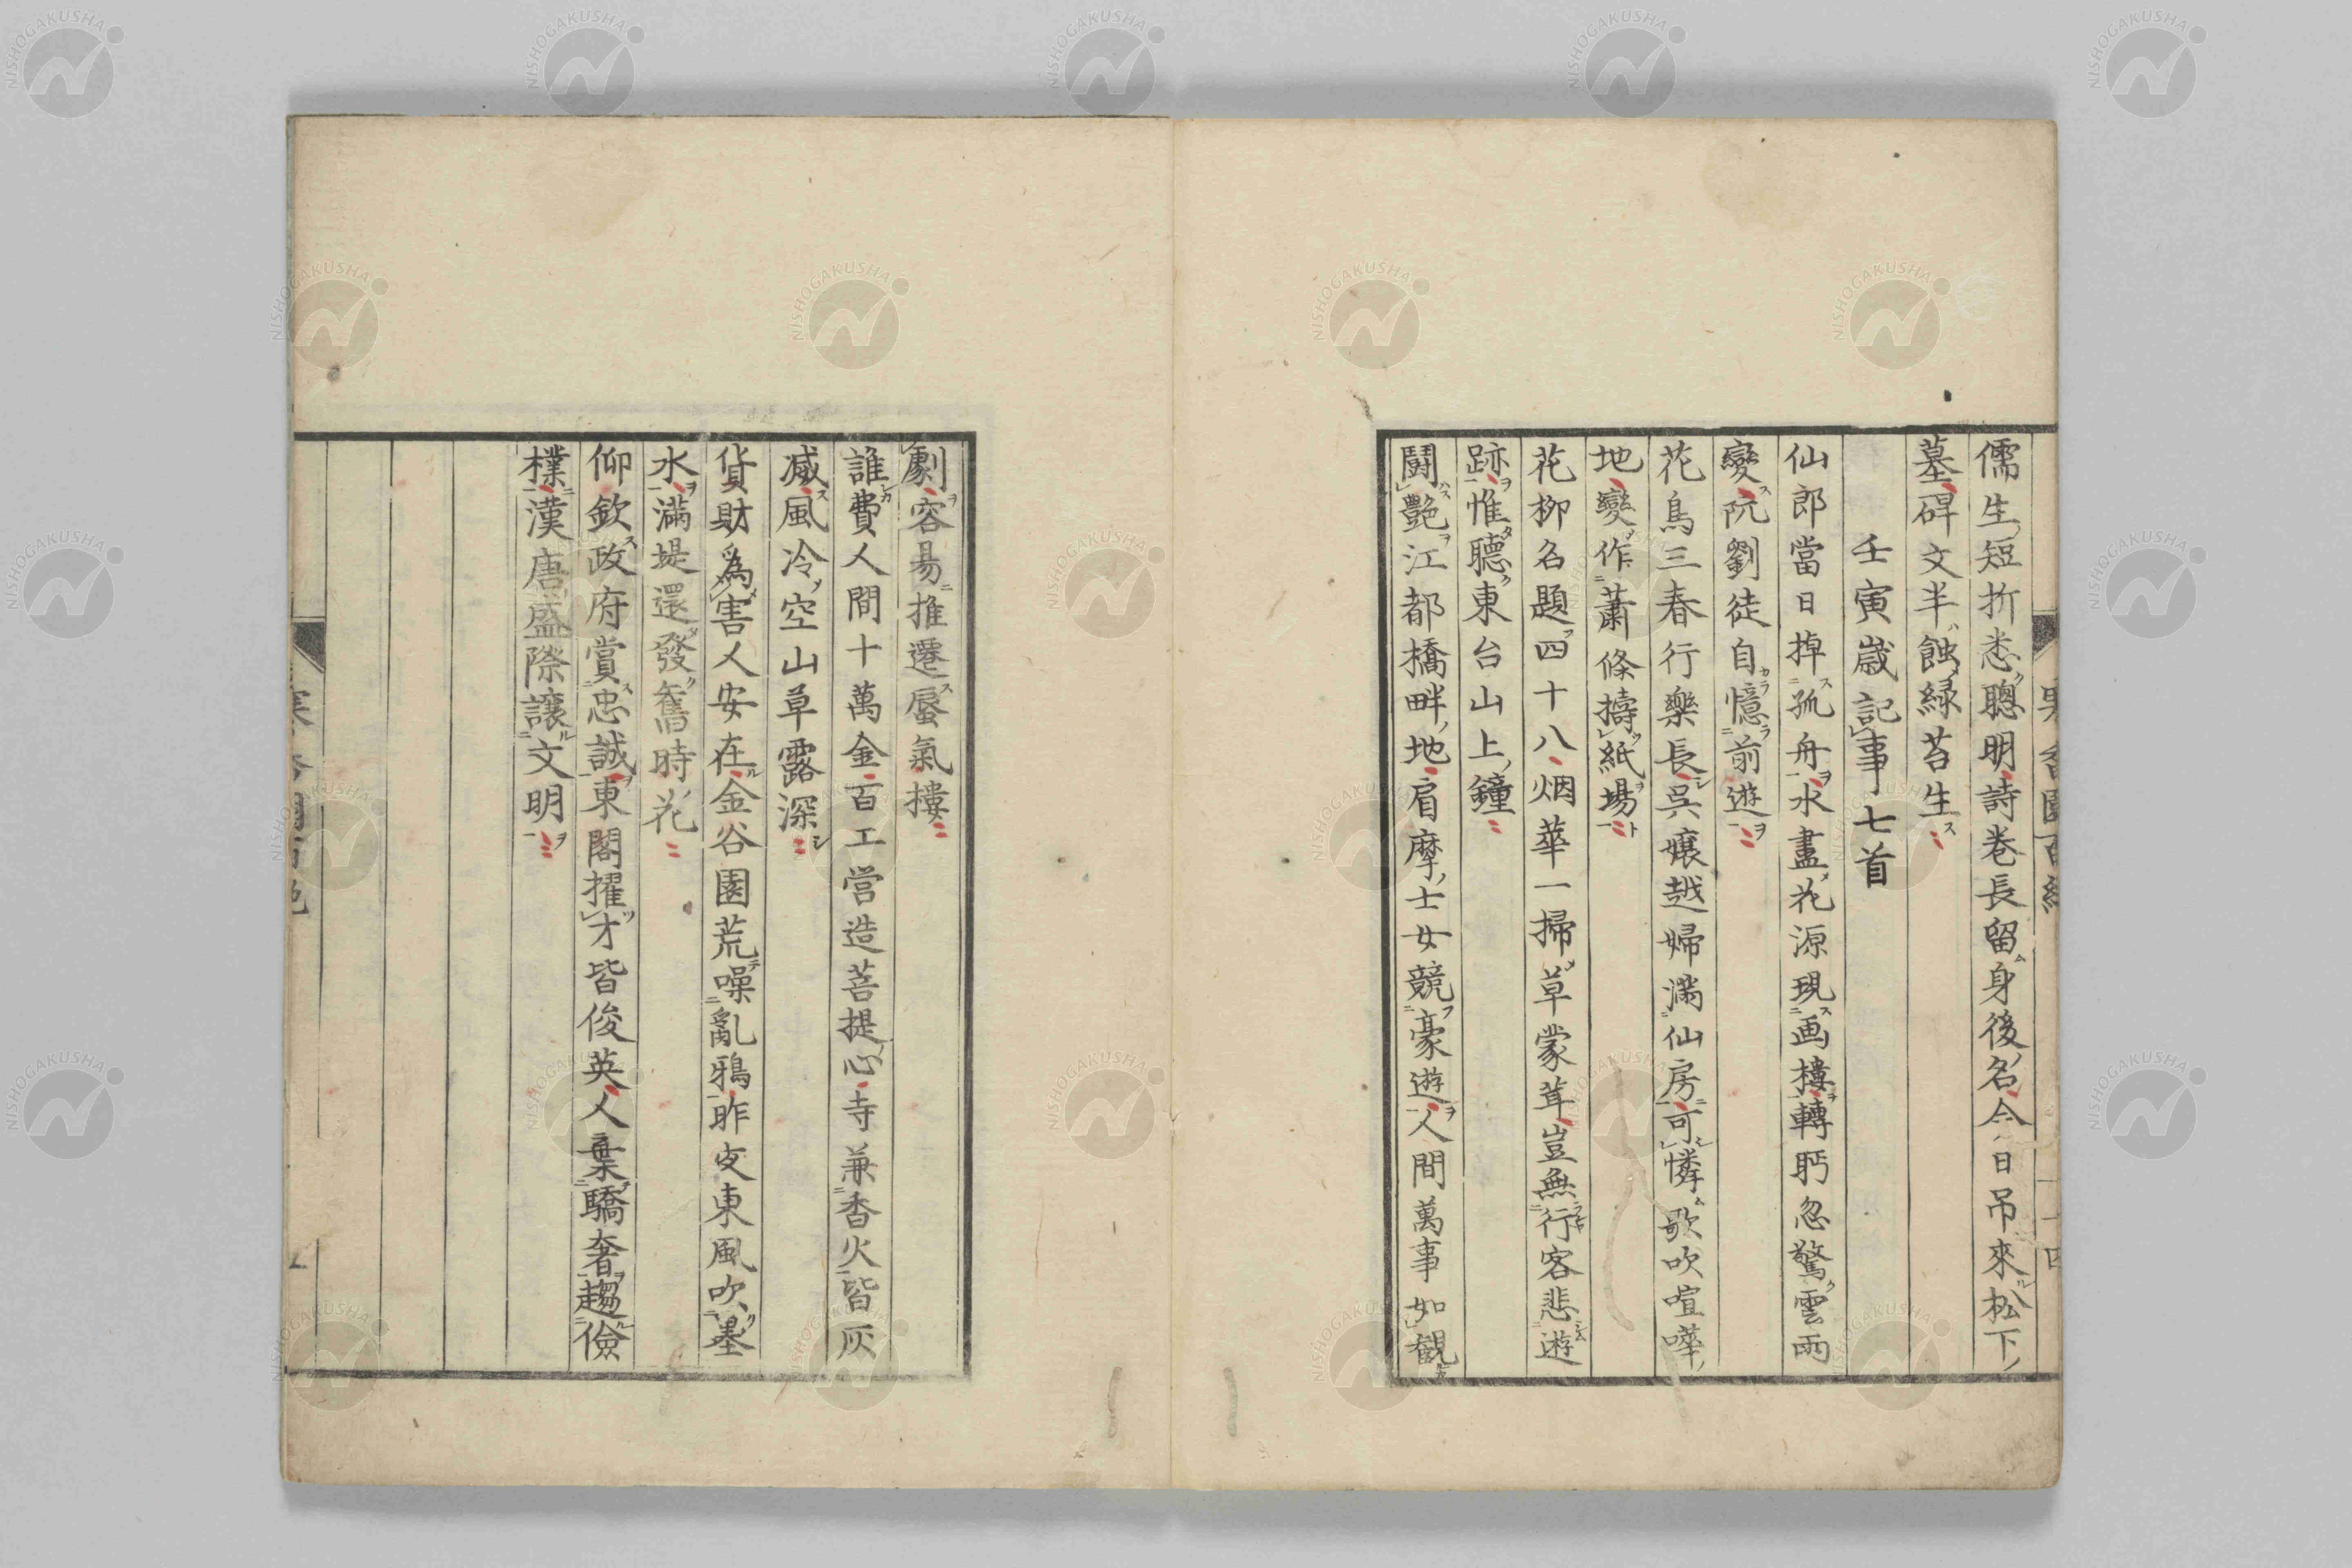 儒生短折悉聰明詩卷長留身後名今日吊來松下
墓碑文半蝕綠苔生
壬寅歲記事七首
仙郎當日掉孤舟水盡花源現画樓轉眄忽驚雲雨
變阮劉徒自憶前遊
花鳥三春行樂長呉孃越婦滿仙房可憐歌吹喧嘩
地變作蕭條擣紙場
花柳名題四十八烟華一掃草蒙茸豈無行客悲遊
跡惟聽東台山上鐘
鬪艷江都橋畔地肩摩士女競豪遊人間萬事如観
劇容易推遷蜃氣樓
誰費人間十萬金百工営造菩提心寺兼香火皆灰
滅風冷空山草露深
貨財爲害人安在金谷園荒噪亂鴉昨夜東風吹墨
水滿堤還發舊時花
仰欽政府賞忠誠東閣擢才皆俊英人棄驕奢趨儉
樸漢唐盛際讓文明
NISHOGAKUSHA